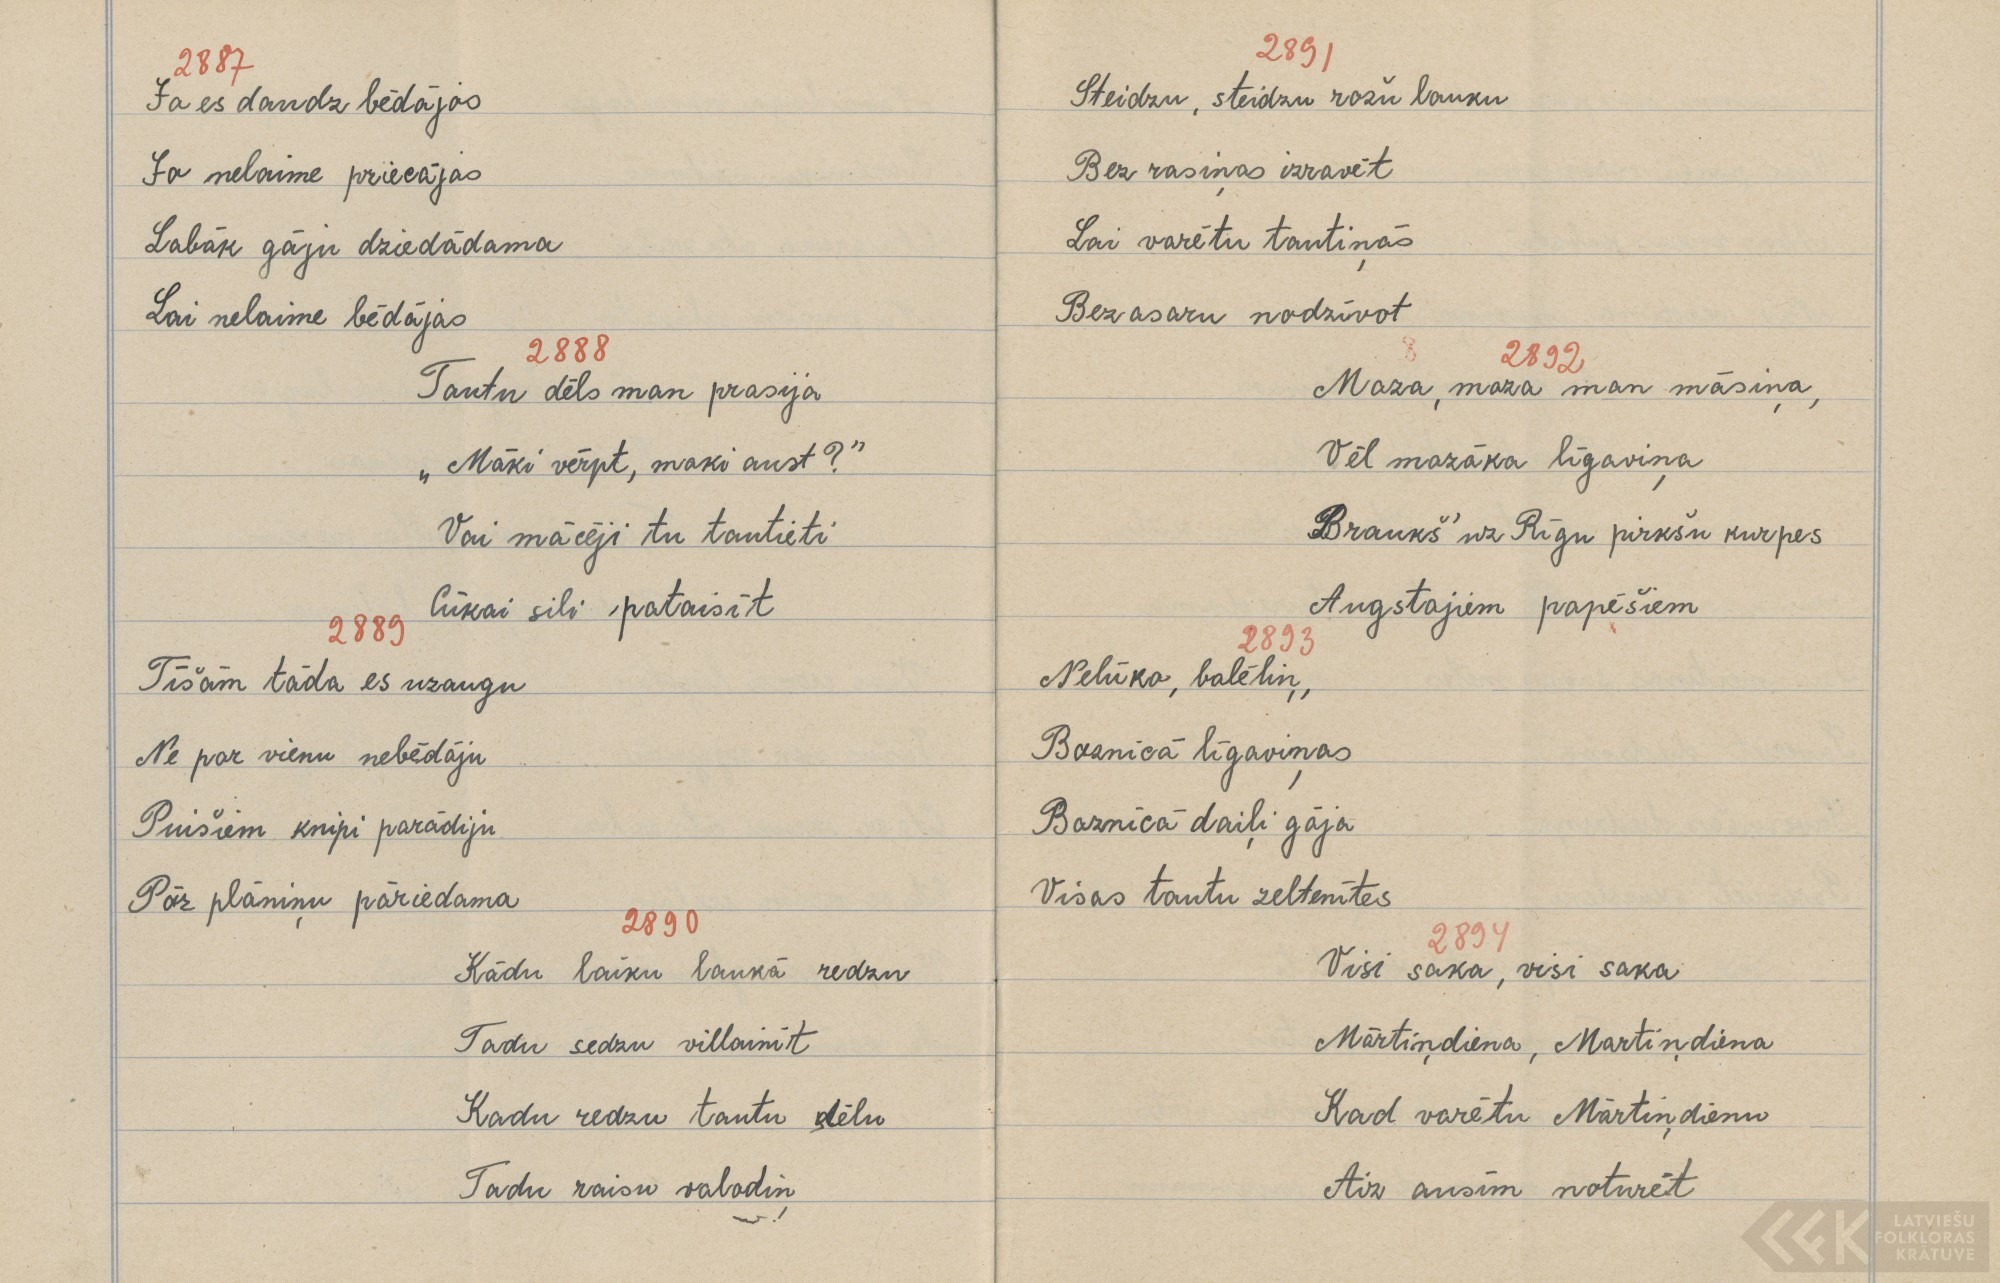 2887
Ja es daudz bēdājos
Ja nelaime priecājas
Labāk gāju dziedādama
Lai nelaime bēdājas
2888
Tautu dēls man prasija
„Māki vērpt, maki aust?”
Vai mācēji tu tautieti
Cūkai sili pataisīt
2889
Tīšām tāda es uzaugu
Ne par vienu nebēdāju
Puišiem knipi parādiju
Pār plāniņu pāriedama
2890
Kādu laiku laukā redzu
Tadu sedzu villainīt
Kadu redzu tautu dēlu
Tadu raisu valodiņ
2891
Steidzu, steidzu rožu lauku
Bez rasiņas izravēt
Lai varētu tautiņās
Bez asaru nodzīvot
2892
Maza, maza man māsiņa,
Vēl mazāka līgaviņa
Braukš' uz Rīgu pirkšu kurpes
Augstajiem papēšiem
2893
Nelūko, balēliņ,
Baznīcā līgaviņas
Baznīcā daiļi gāja
Visas tautu zeltenītes
2894
Visi saka, visi saka
Mārtiņdiena, Martiņdiena
Kad varētu Mārtiņdienu
Aiz ausīm noturēt
LATVIEŠU
FOLKLORAS
KRĀTUVE